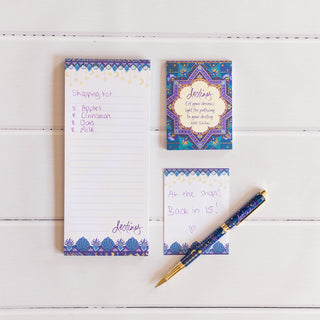 Shopping list
Apples
Cinnamon
Oats
Milk
destiny
destiny
Let your dreams
light the pathway
to your destiny
At the shops!
Back in 15!